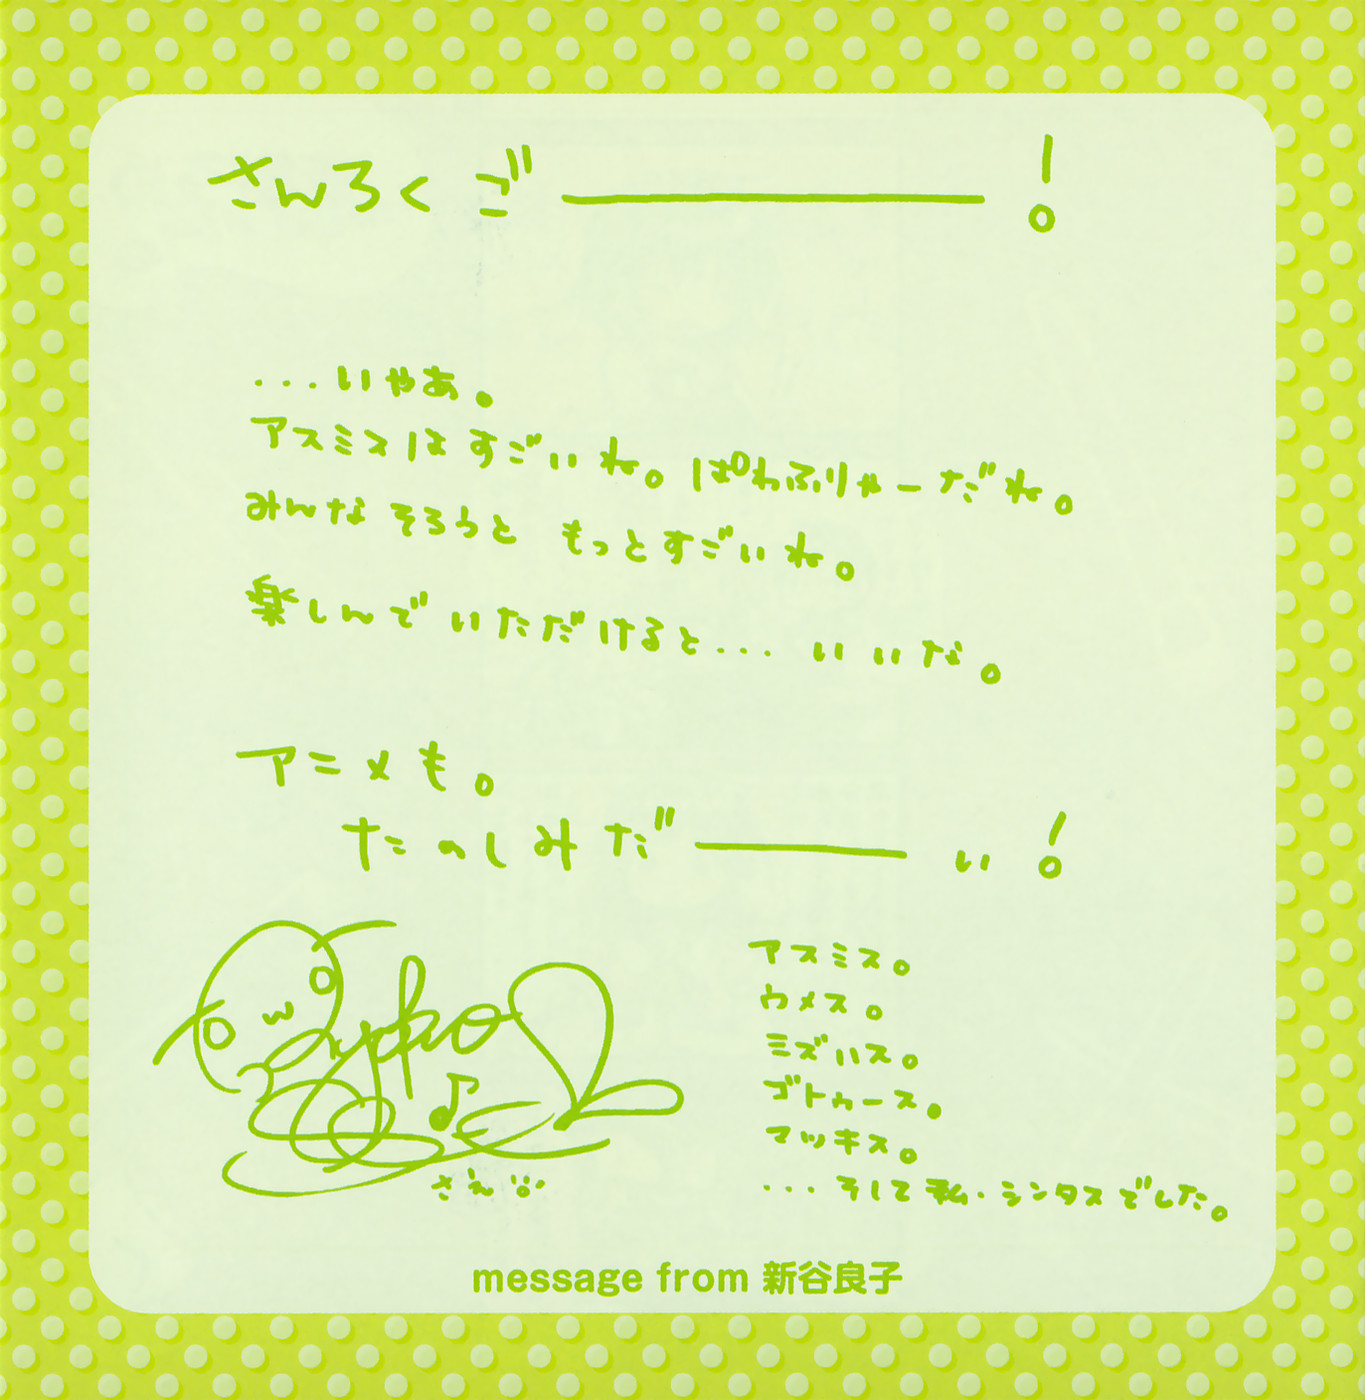 さんろくご————！
...いやあ。
アスミスはすごいね。ぱわふりゃーだね。
みんなそろうともっとすごいね。
楽しんでいただけると...いいな。
アニメも。
たのしみだ———い！
アスミス。
ウメス。
ミズハス。
ゴトゥース。
マッキス。
...そして私・シンタスでした。
Ryoko
message from 新谷良子